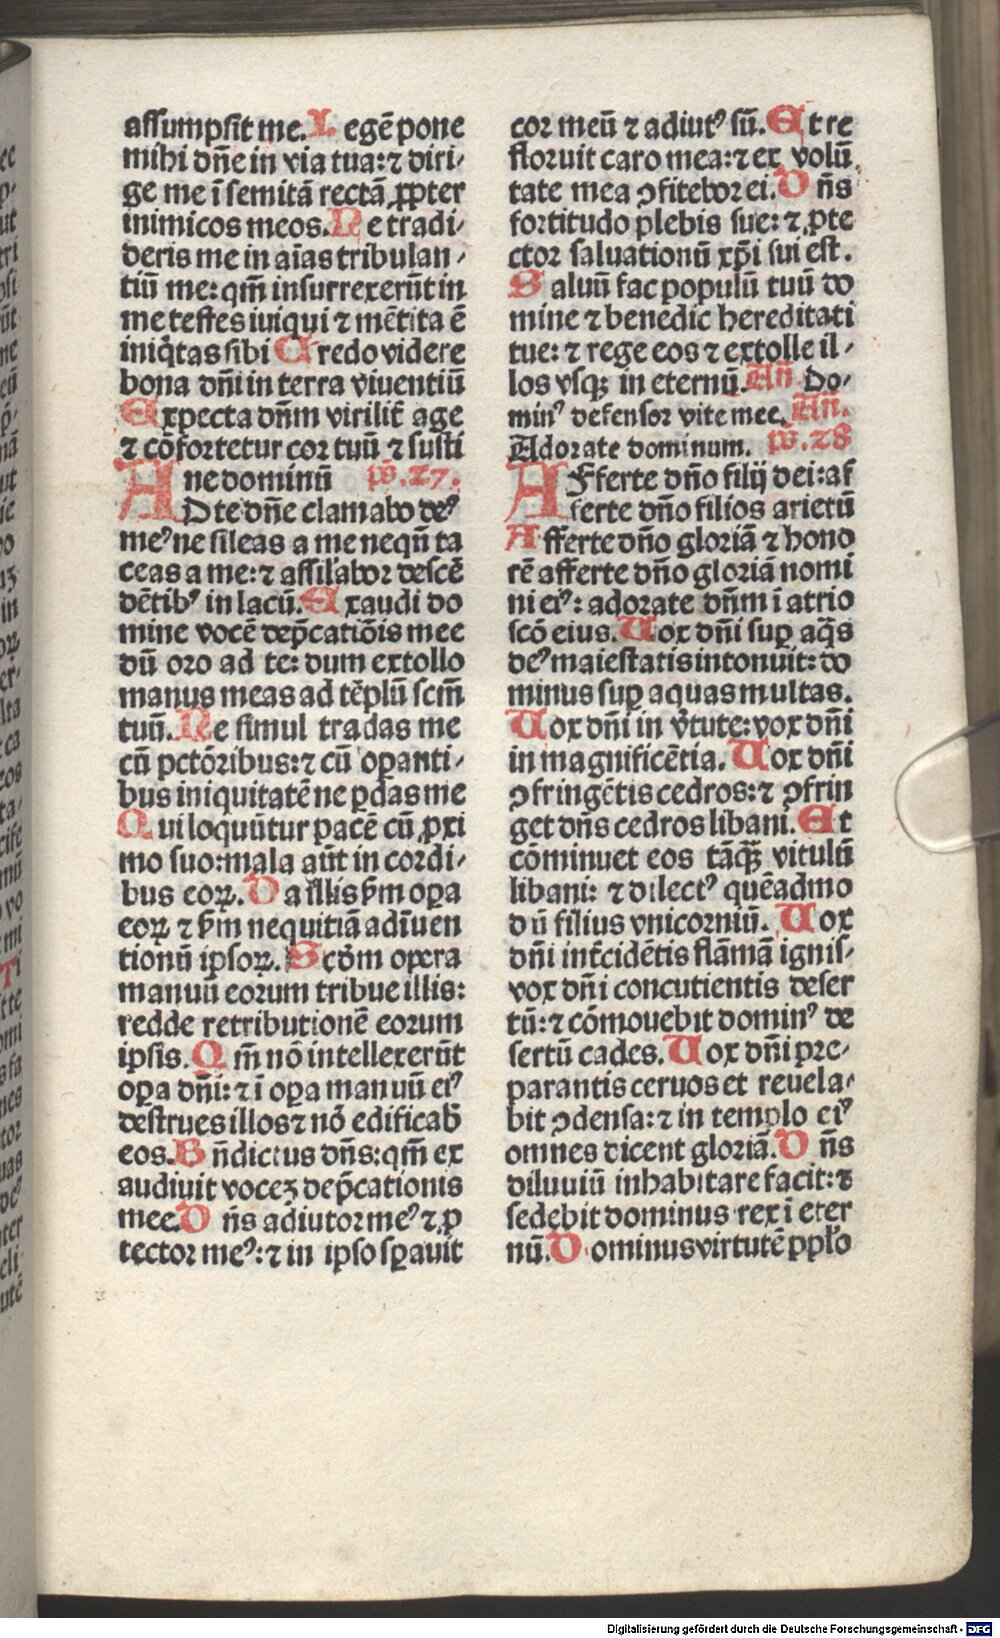 assumpsit me. Legē pone
mihi dn̄e in via tua: ⁊ diri⸗
ge me ī semitā rectā ꝓpter
inimicos meos. Ne tradi⸗
deris me in aīas tribulan⸗
tiū me: qm̄ insurrexerūt in
me testes iniqui ⁊ mētita ē
iniq̇tas sibi Credo videre
bona dn̄i in terra viventiū
Expecta dn̄m virilit̄ age
⁊ cōfortetur cor tuū ⁊ susti
ne dominū ps̄. 27.
AD te dn̄e clamabo deꝰ
meꝰ ne sileas a me neqn̄ ta
ceas a me: ⁊ assilabor descē
dētibꝰ in lacū. Exaudi do
mine vocē dep̄catiōis mee
dū oro ad te: dum extollo
manus meas ad tēplū scm̄
tuū. Ne simul tradas me
cū pctōribus: ⁊ cū oꝑanti⸗
bus iniquitatē ne ꝑdas me
Qui loquūtur pacē cū ꝓxi
mo suo: mala aūt in cordi⸗
bus eoꝝ. Da illis ẜm oꝑa
eoꝝ ⁊ ẜm nequitiā adīuen
tionū ipsoꝝ. Scḋm opera
manuū eorum tribue illis:
redde retributionē eorum
ipsis. Qm̄ nō intellexerūt
oꝑa dn̄i: ⁊ ī oꝑa manuū eiꝰ
destrues illos ⁊ nō edificab̄
eos. Bn̄dictus dn̄s: qm̄ ex
audiuit vocez dep̄cationis
mee. Dn̄s adiutor meꝰ ⁊ ꝓ
tector meꝰ: ⁊ in ipso sꝑauit
cor meū ⁊ adiutꝰ sū. Et re
floruit caro mea: ⁊ ex volū
tate mea ꝯfitebor ei. Dn̄s
fortitudo plebis sue: ⁊ ꝓte
ctor saluationū xp̄i sui est.
Saluū fac populū tuū do
mine ⁊ benedic hereditati
tue: ⁊ rege eos ⁊ extolle il⸗
los vsqꝫ in eternū. An̄. Do⸗
minꝰ defensor vite mee. An̄.
Adorate dominum. ps̄. 28
AFferte dn̄o filij dei: af
ferte dn̄o filios arietū
Afferte dn̄o gloriā ⁊ hono
rē afferte dn̄o gloriā nomi
ni eiꝰ: adorate dn̄m ī atrio
scō eius. Uox dn̄i suꝑ aq̄s
deꝰ maiestatis intonuit: do
minus suꝑ aquas multas.
Uox dn̄i in v̄tute: vox dn̄i
in magnificētia. Uox dn̄i
ꝯfringētis cedros: ⁊ ꝯfrin
get dn̄s cedros libani. Et
cōminuet eos tāqꝫ vitulū
libani: ⁊ dilectꝰ quēadmo
dū filius vnicorniū. Uox
dn̄i int̄cidētis flāmā ignis⸗
vox dn̄i concutientis deser
tū: ⁊ cōmouebit dominꝰ de
sertū cades. Uox dn̄i pre⸗
parantis ceruos et reuela⸗
bit ꝯdensa: ⁊ in templo eiꝰ
omnes dicent gloriā. Dn̄s
diluuiū inhabitare facit: ⁊
sedebit dominus rex ī eter
nū. Dominus virtutē pp̄lo
Digitalisierung gefördert durch die Deutsche Forschungsgemeinschaft - DFG